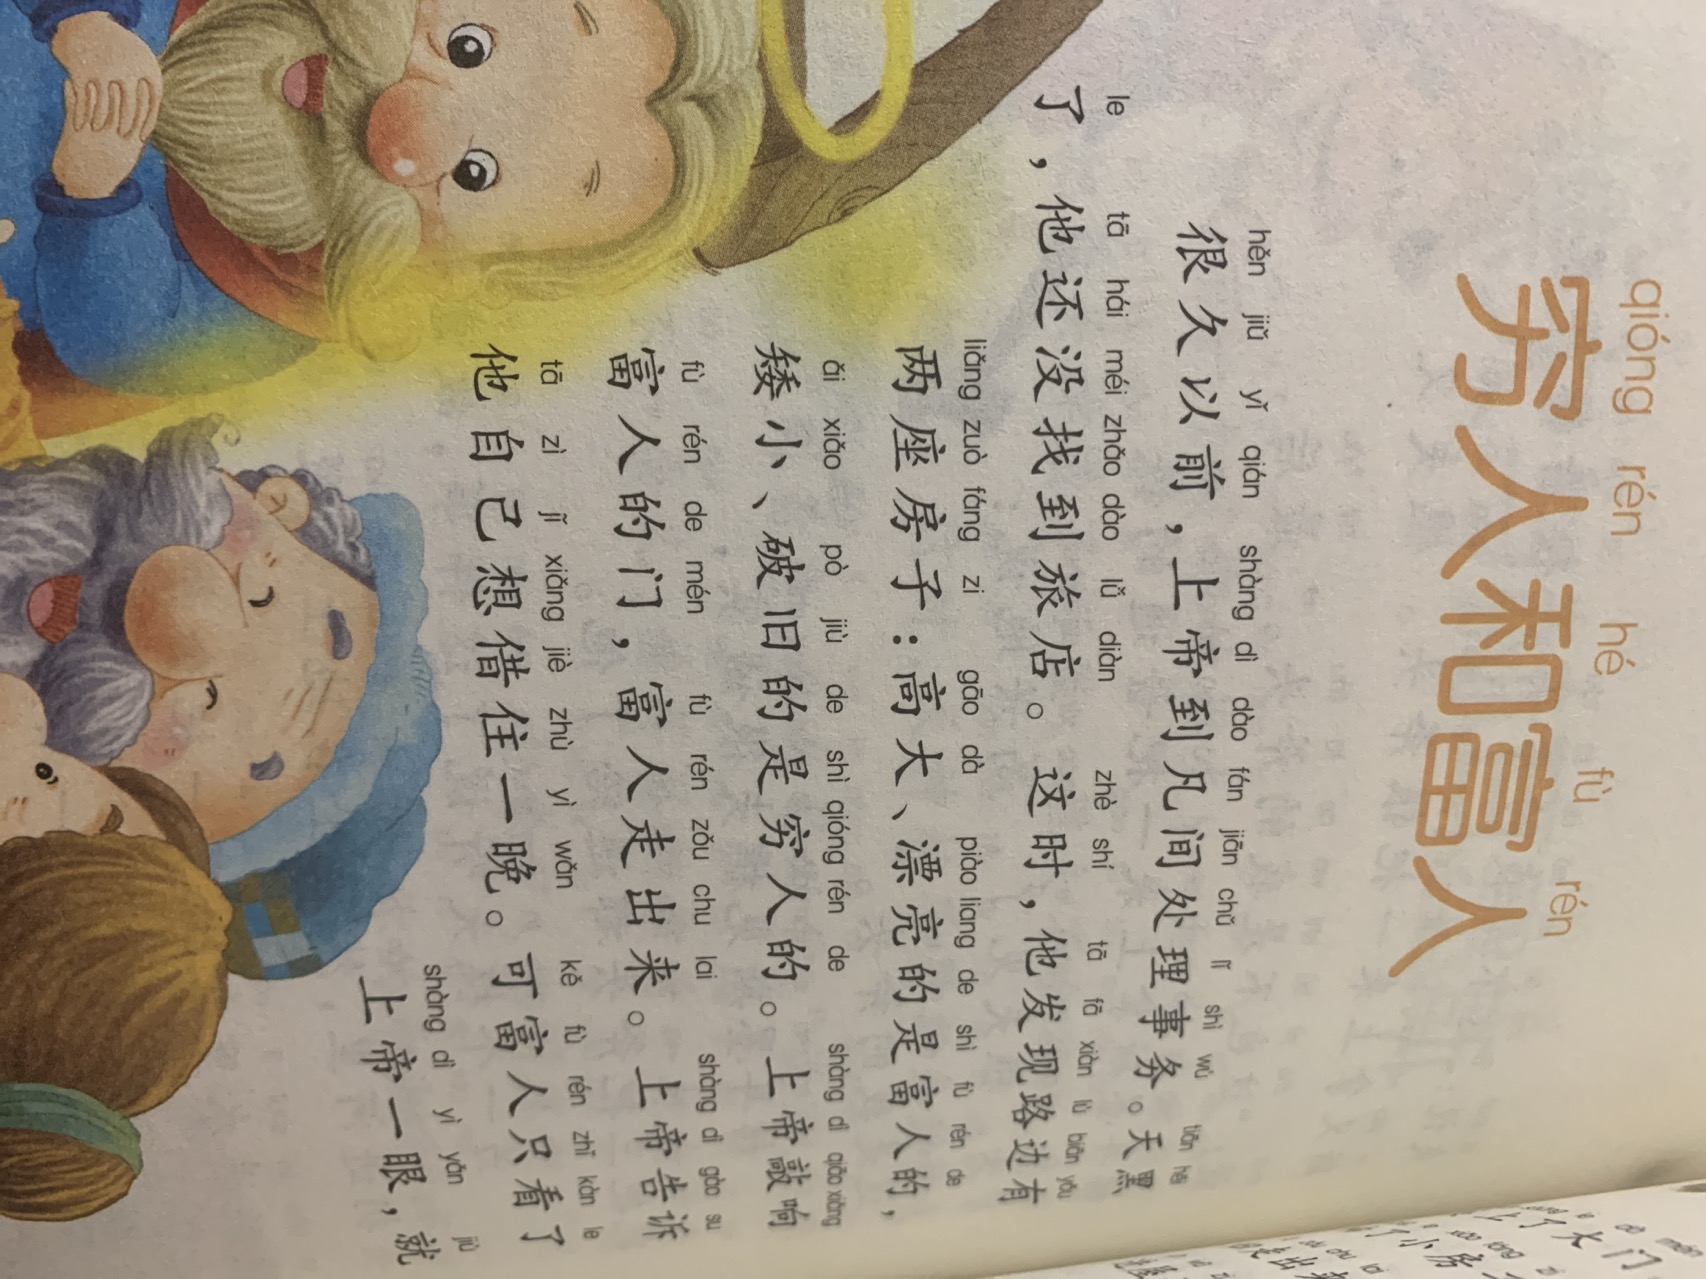 qióng rén hé fù rén
穷人和富人
hěn jiǔ yǐ qián shàng dì dào fán jiān chǔ lǐ shì wù tiān hēi
很久以前，上帝到凡间处理事务。天黑
le tā hái méi zhǎo dào lǚ diàn zhè shí tā fā xiàn lù biān yǒu
了，他还没找到旅店。这时，他发现路边有
liǎng zuò fáng zi gāo dà piào liang de shì fù rén de
两座房子：高大、漂亮的是富人的，
ǎi xiǎo pò jiù de shì qióng rén de shàng dì qiāo xiǎng
矮小、破旧的是穷人的。上帝敲响
fù rén de mén fù rén zǒu chu lai shàng dì gào su
富人的门，富人走出来。上帝告诉
tā zì jǐ xiǎng jiè zhù yì wǎn kě fù rén zhǐ kàn le
他自己想借住一晚。可富人只看了
shàng dì yì yǎn jiù
上帝一眼，就